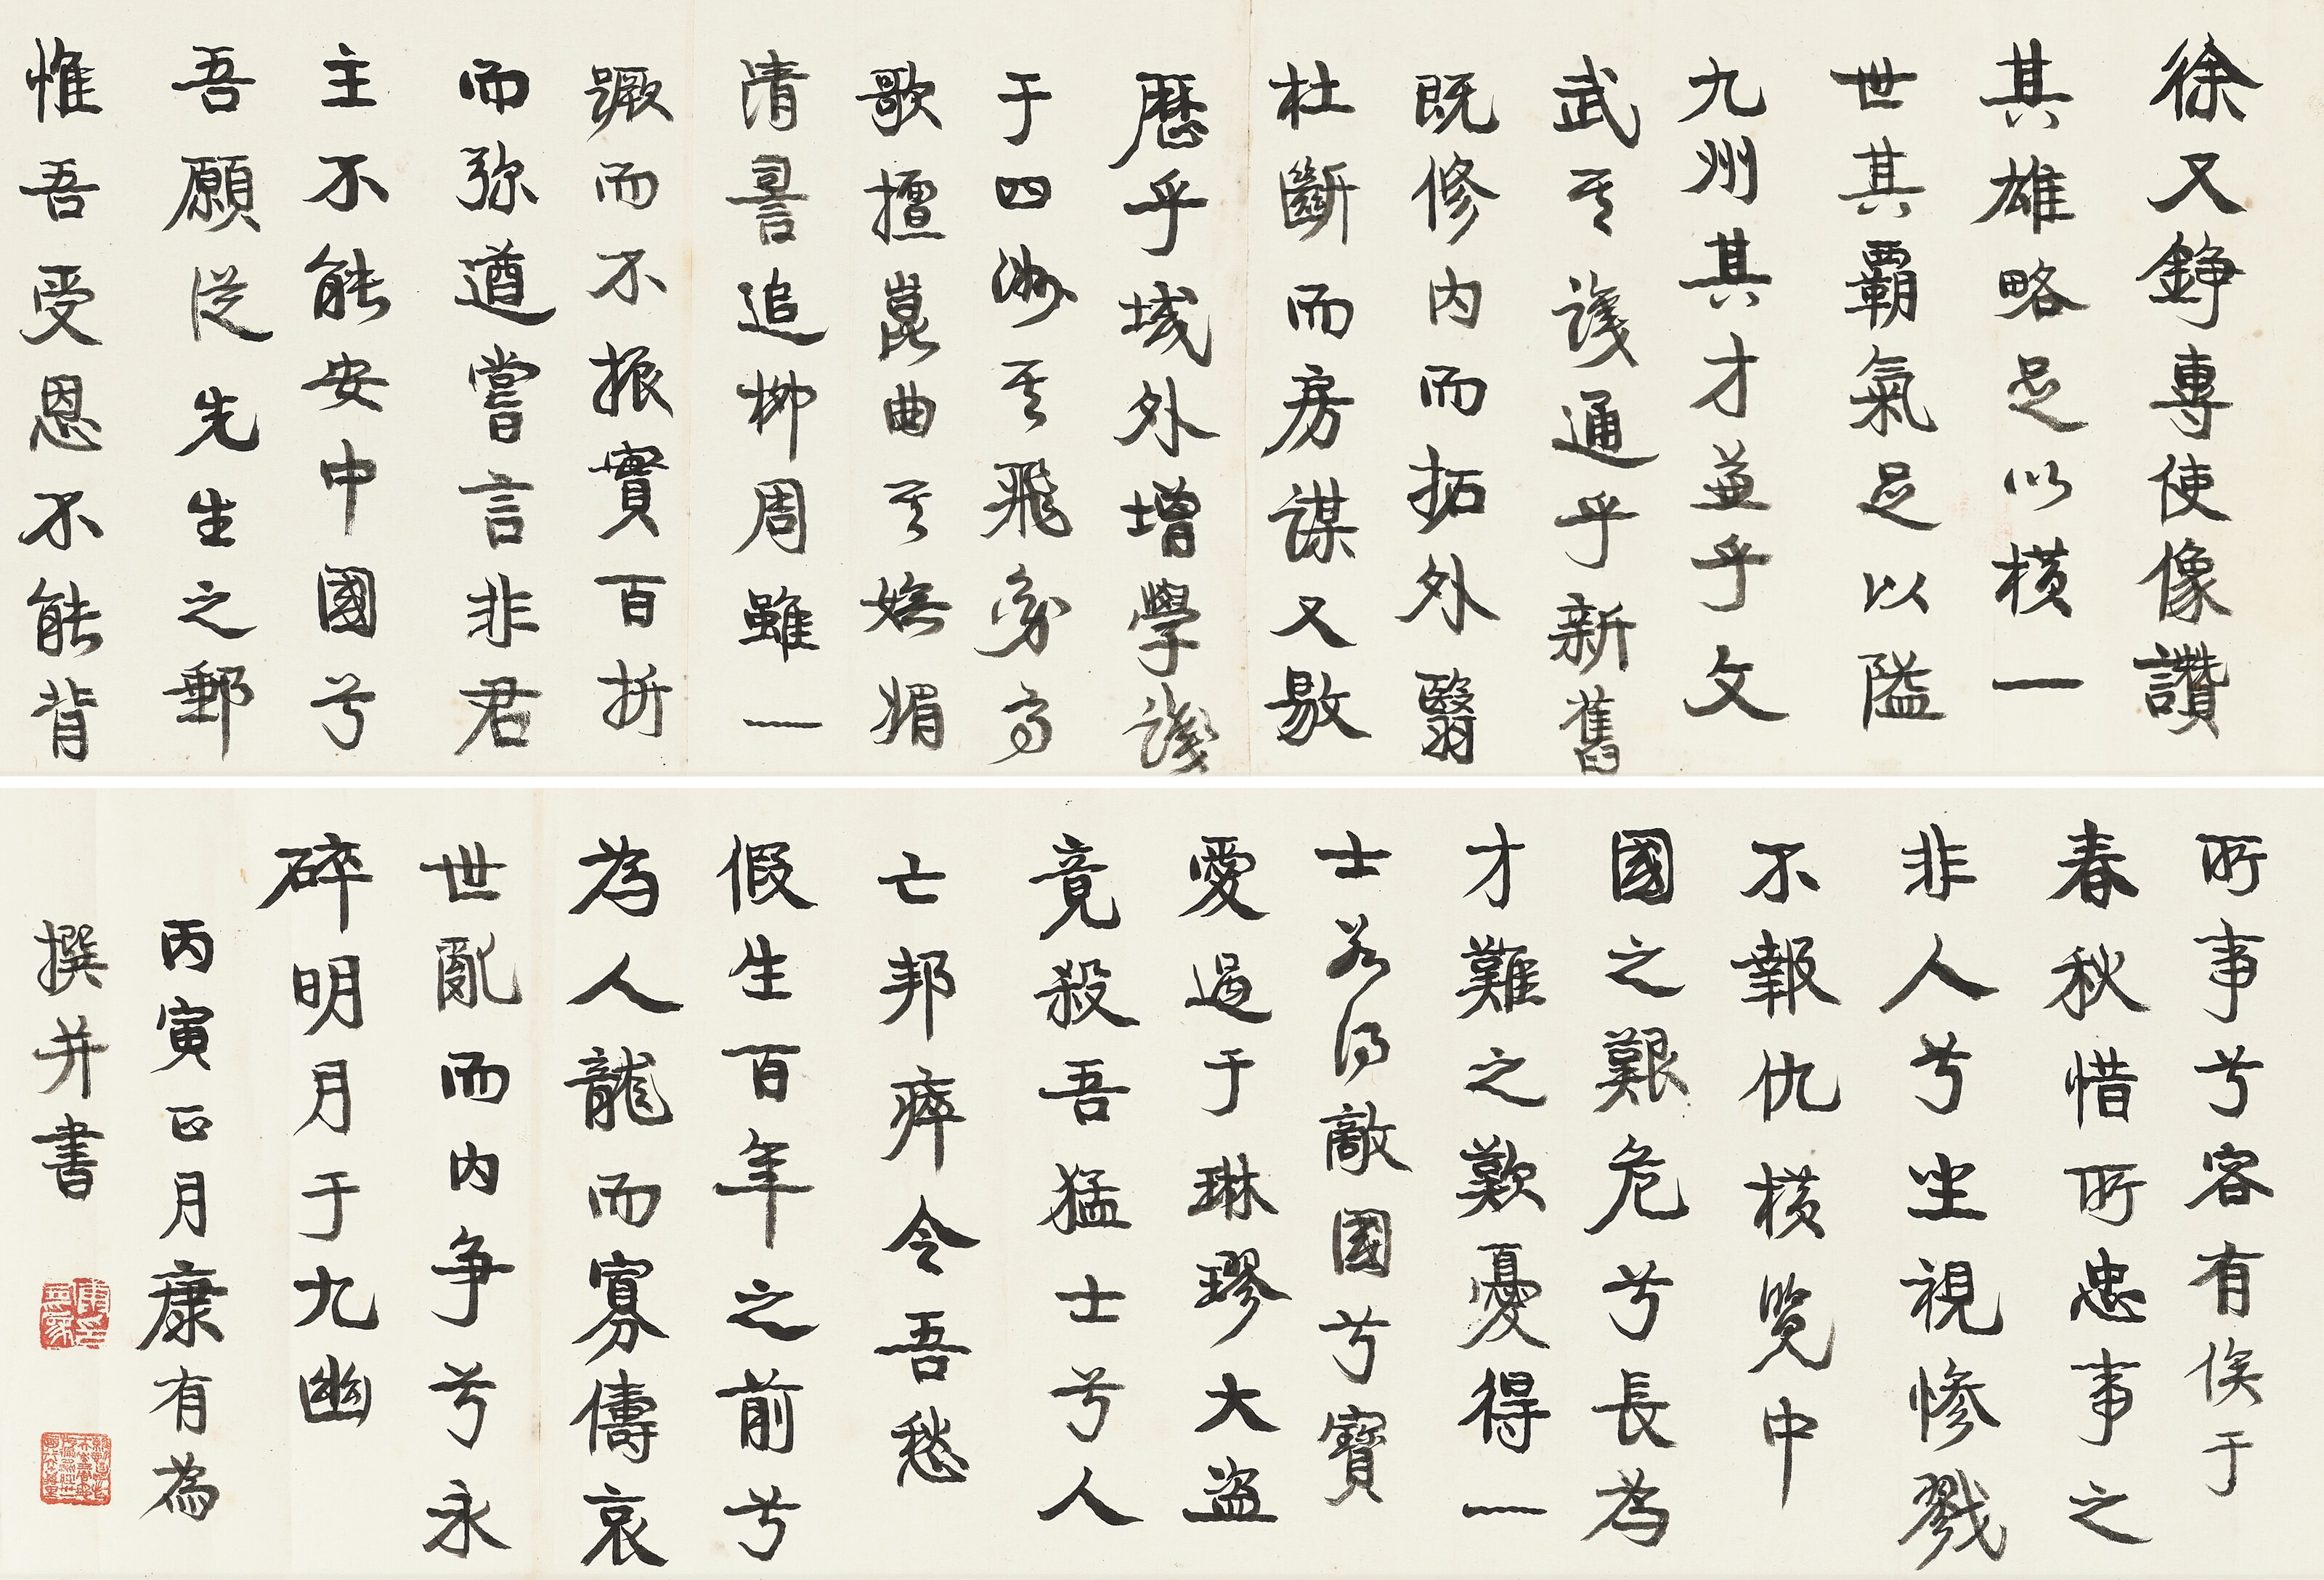 徐又錚專使像讚
其雄略足以橫一
世其霸氣足以隘
九州其才兼乎文
武其識通乎新舊
既修內而拓外翳
杜斷而房謀又敭
歷乎域外增學識
于四洲其飛動高
歌擅崑曲其嫵媚
清詈追柳周雖一
蹶而不振實百折
而弥遒嘗言非君
主不能安中國兮
吾願從先生之郵
惟吾受恩不能背
所事兮客有俟于
春秋惜所忠事之
非人兮坐視慘戮
不報仇橫覽中
國之艱危兮長為
才難之歎憂得一
士若得敵國兮寶
愛過于琳璆大盜
竟殺吾猛士兮人
亡邦瘁令吾愁
假生百年之前兮
為人龍而寡儔哀
世亂而內爭兮永
碎明月于九幽
丙寅正月康有為
撰并書